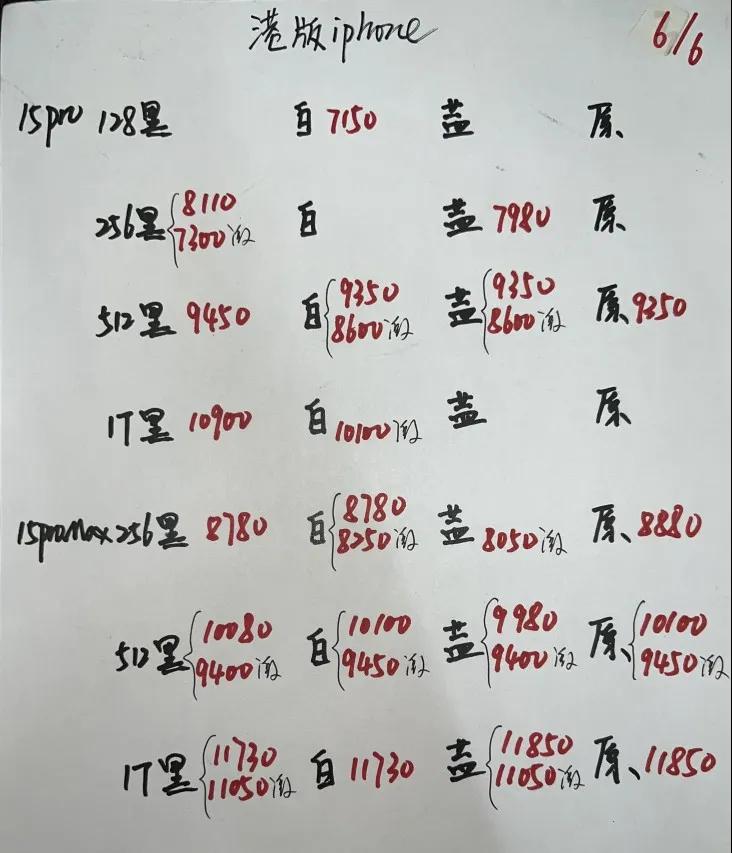 港版iphone 6/6
15pro 128黑 白 7150 蓝 原、
256黑 8110 白 蓝 7980 原、
7300激
512黑 9450 白 9350 蓝 9350 原、9250
8600激 8600激
1T黑 10900 白 10100激 蓝 原
15proMax 256黑 8780 白 8780 蓝 8050激 原、8880
8250激
512黑 10080 白 10100 蓝 9980 原、10100
9400激 9450激 9400激 9450激
1T黑 11730 白 11730 蓝 11850 原、11850
11050激 11050激